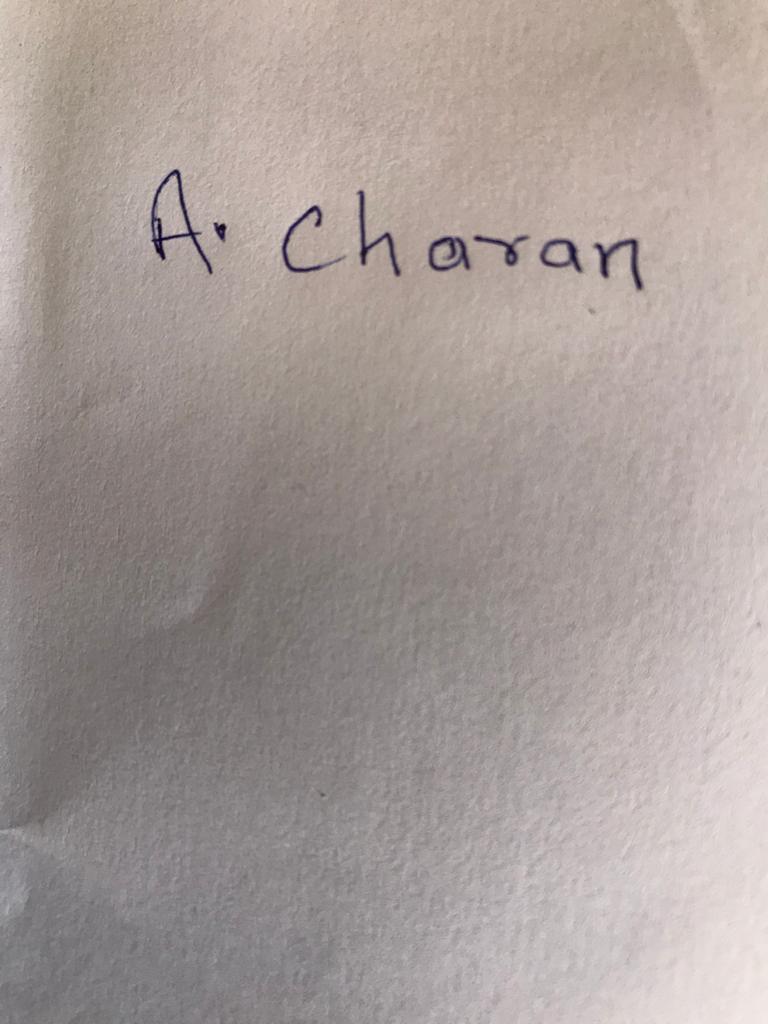 A. Charan